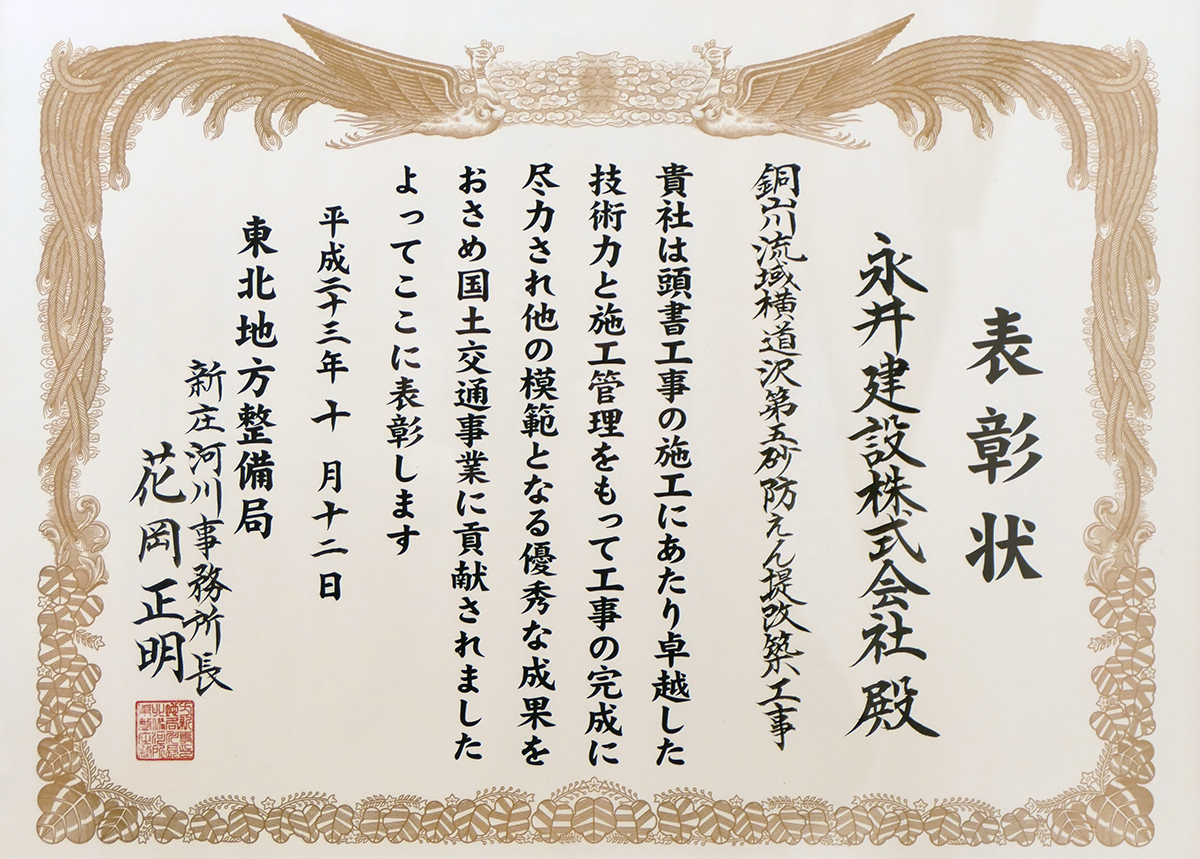 表彰状
永井建設株式会社殿
銅山川流域横道沢第五砂防えん堤改築工事
貴社は頭書工事の施工にあたり卓越した
技術力と施工管理をもって工事の完成に
尽力され他の模範となる優秀な成果を
おさめ国土交通事業に貢献されました
よってここに表彰します
平成二十三年十月十二日
東北地方整備局
新庄河川事務所長
花岡正明